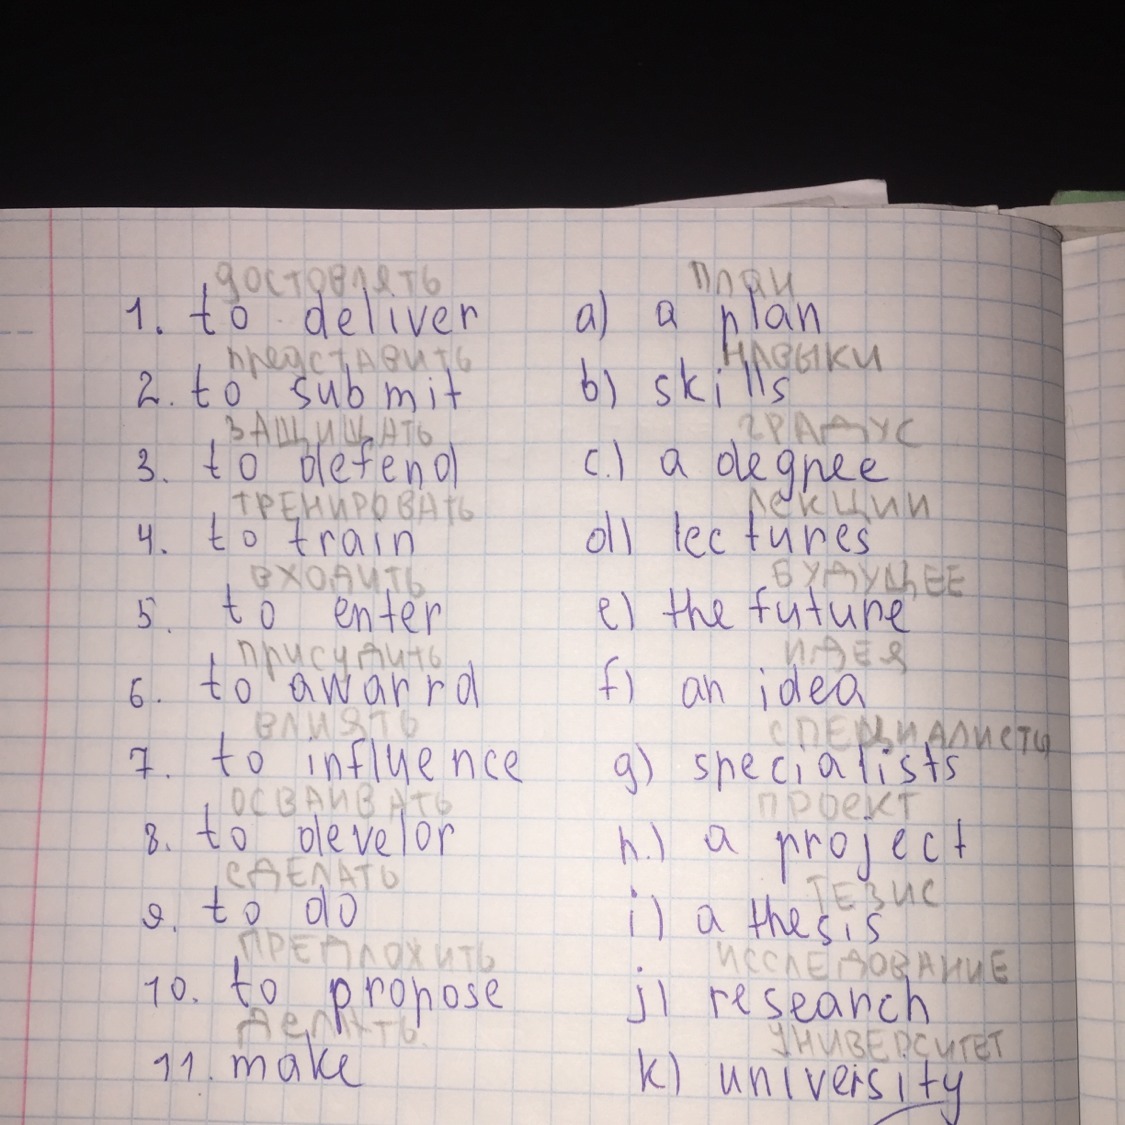 достовлять план
1. to deliver a) a plan
представить навыки
2. to submit b) skills
ЗАЩИЩАТЬ ГРАДУС
3. to defend c.) a degree
ТРЕНИРОВАТЬ лекции
4. to train d) lectures
ВХОДИТЬ БУДУЩЕЕ
5. to enter e) the future
присудить ИДЕЯ
6. to awarrd f) an idea
ВЛИЯТЬ СПЕЦИАЛИСТЫ
7. to influence g) specialists
ОСВАИВАТЬ ПРОЕКТ
8. to develor h.) a project
СДЕЛАТЬ ТЕЗИС
9. to do i) a thesis
ПРЕДЛОЖИТЬ ИССЛЕДОВАНИЕ
10. to propose j) research
ДЕЛАТЬ УНИВЕРСИТЕТ
11. make k) university